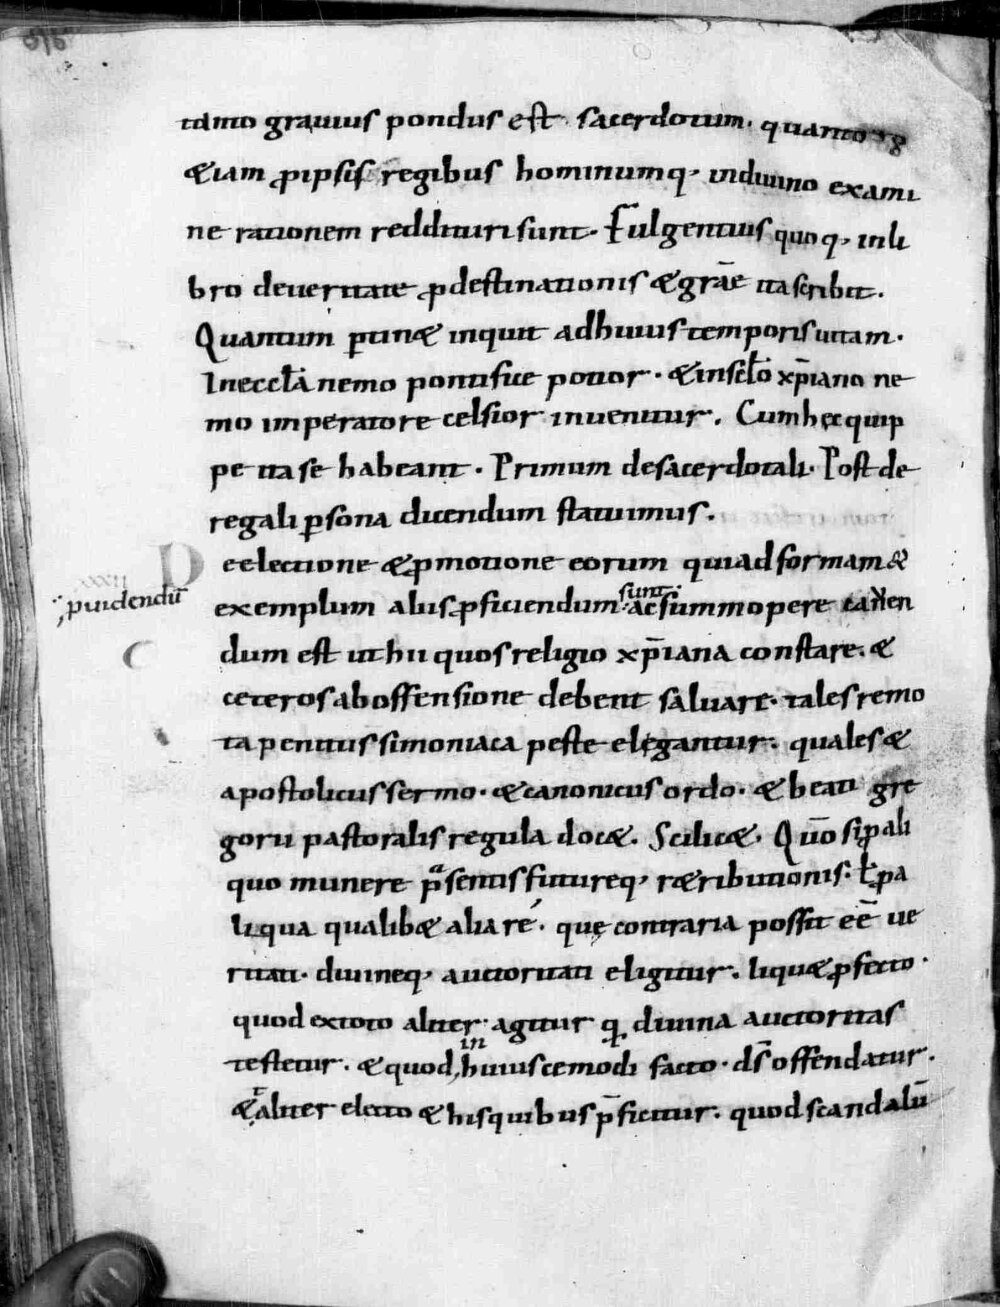 tanto grauius pondus est sacerdotum. quanto
&iam ꝓipsis regibus hominumq; indiuino exami
ne rationem reddituri sunt. Fulgentius quoq; inli
bro deueritate p̄destinationis & grāe ita scribit.
Quantum ꝑtin& inquit adhuius temporis uitam.
Ineccła nemo pontifice potior. & insclo xp̄iano ne
mo imperatore celsior inuenitur. Cum hęc quip
pe ita se habeant. Primum desacerdotali. Post de
regali ꝑsona dicendum statuimus.
xxııı
De electione & ꝓmotione eorum qui ad formam &
ꝓuidendū
exemplum aliis ꝓficiendum sunt. ac summopere
dum est ut hii quos religio xp̄iana constare. &
ceteros ab offensione debent saluare. tales remo
ta penitus simoniaca peste elegantur. quales &
apostolicus sermo. & canonicus ordo. & beati gre
gorii pastoralis regula doc&. Scilic&. Quō si ꝑ ali
quo munere p̄sentis futureq; r&ributionis. ł ꝑ a
liqua qualib& alia re. quę contraria possit eē ue
ritati. diuineq; auctoritati eligitur. liqu& ꝓfecto.
quod extoto aliter agitur q̄ diuina auctoritas
testetur. & quod in huiuscemodi facto. ds̄ offendatur.
& aliter electo & his quibus p̄ficitur. quod scandalū